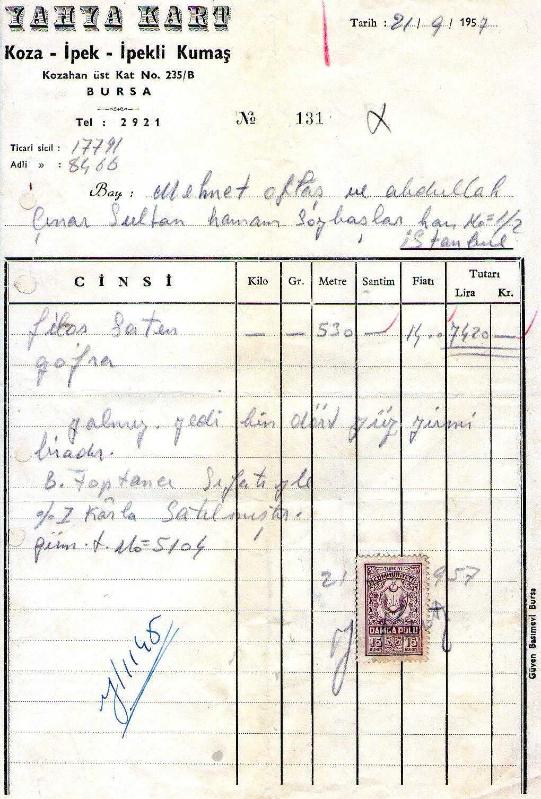 YAHYA KART
Koza - İpek - İpekli Kumaş
Kozahan üst Kat No. 235/B
BURSA
Tel : 2921
Tarih : 21 / 9 / 1957
№ 131
Ticari sicil : 17791
Adli » : 8466
Bay : Mehmet oktaş ve abdullah
Çınar Sultan hamam Sözbaşlar han No=1/2
istanbul
CİNSİ Kilo Gr. Metre Santim Fiatı Tutarı
Lira Kr.
filos Saten — — 530 — 14.. 7420 —
gofra
yalnız. yedi bin dört yüz yirmi
liradır.
B. Toptancı Sıfatıyle
Kârla Satılmıştır.
No=5104
21 957
TÜRKİYE
CUMHURİYETİ
DAMGA PULU
15 15
1145
Güven Basımevi Bursa